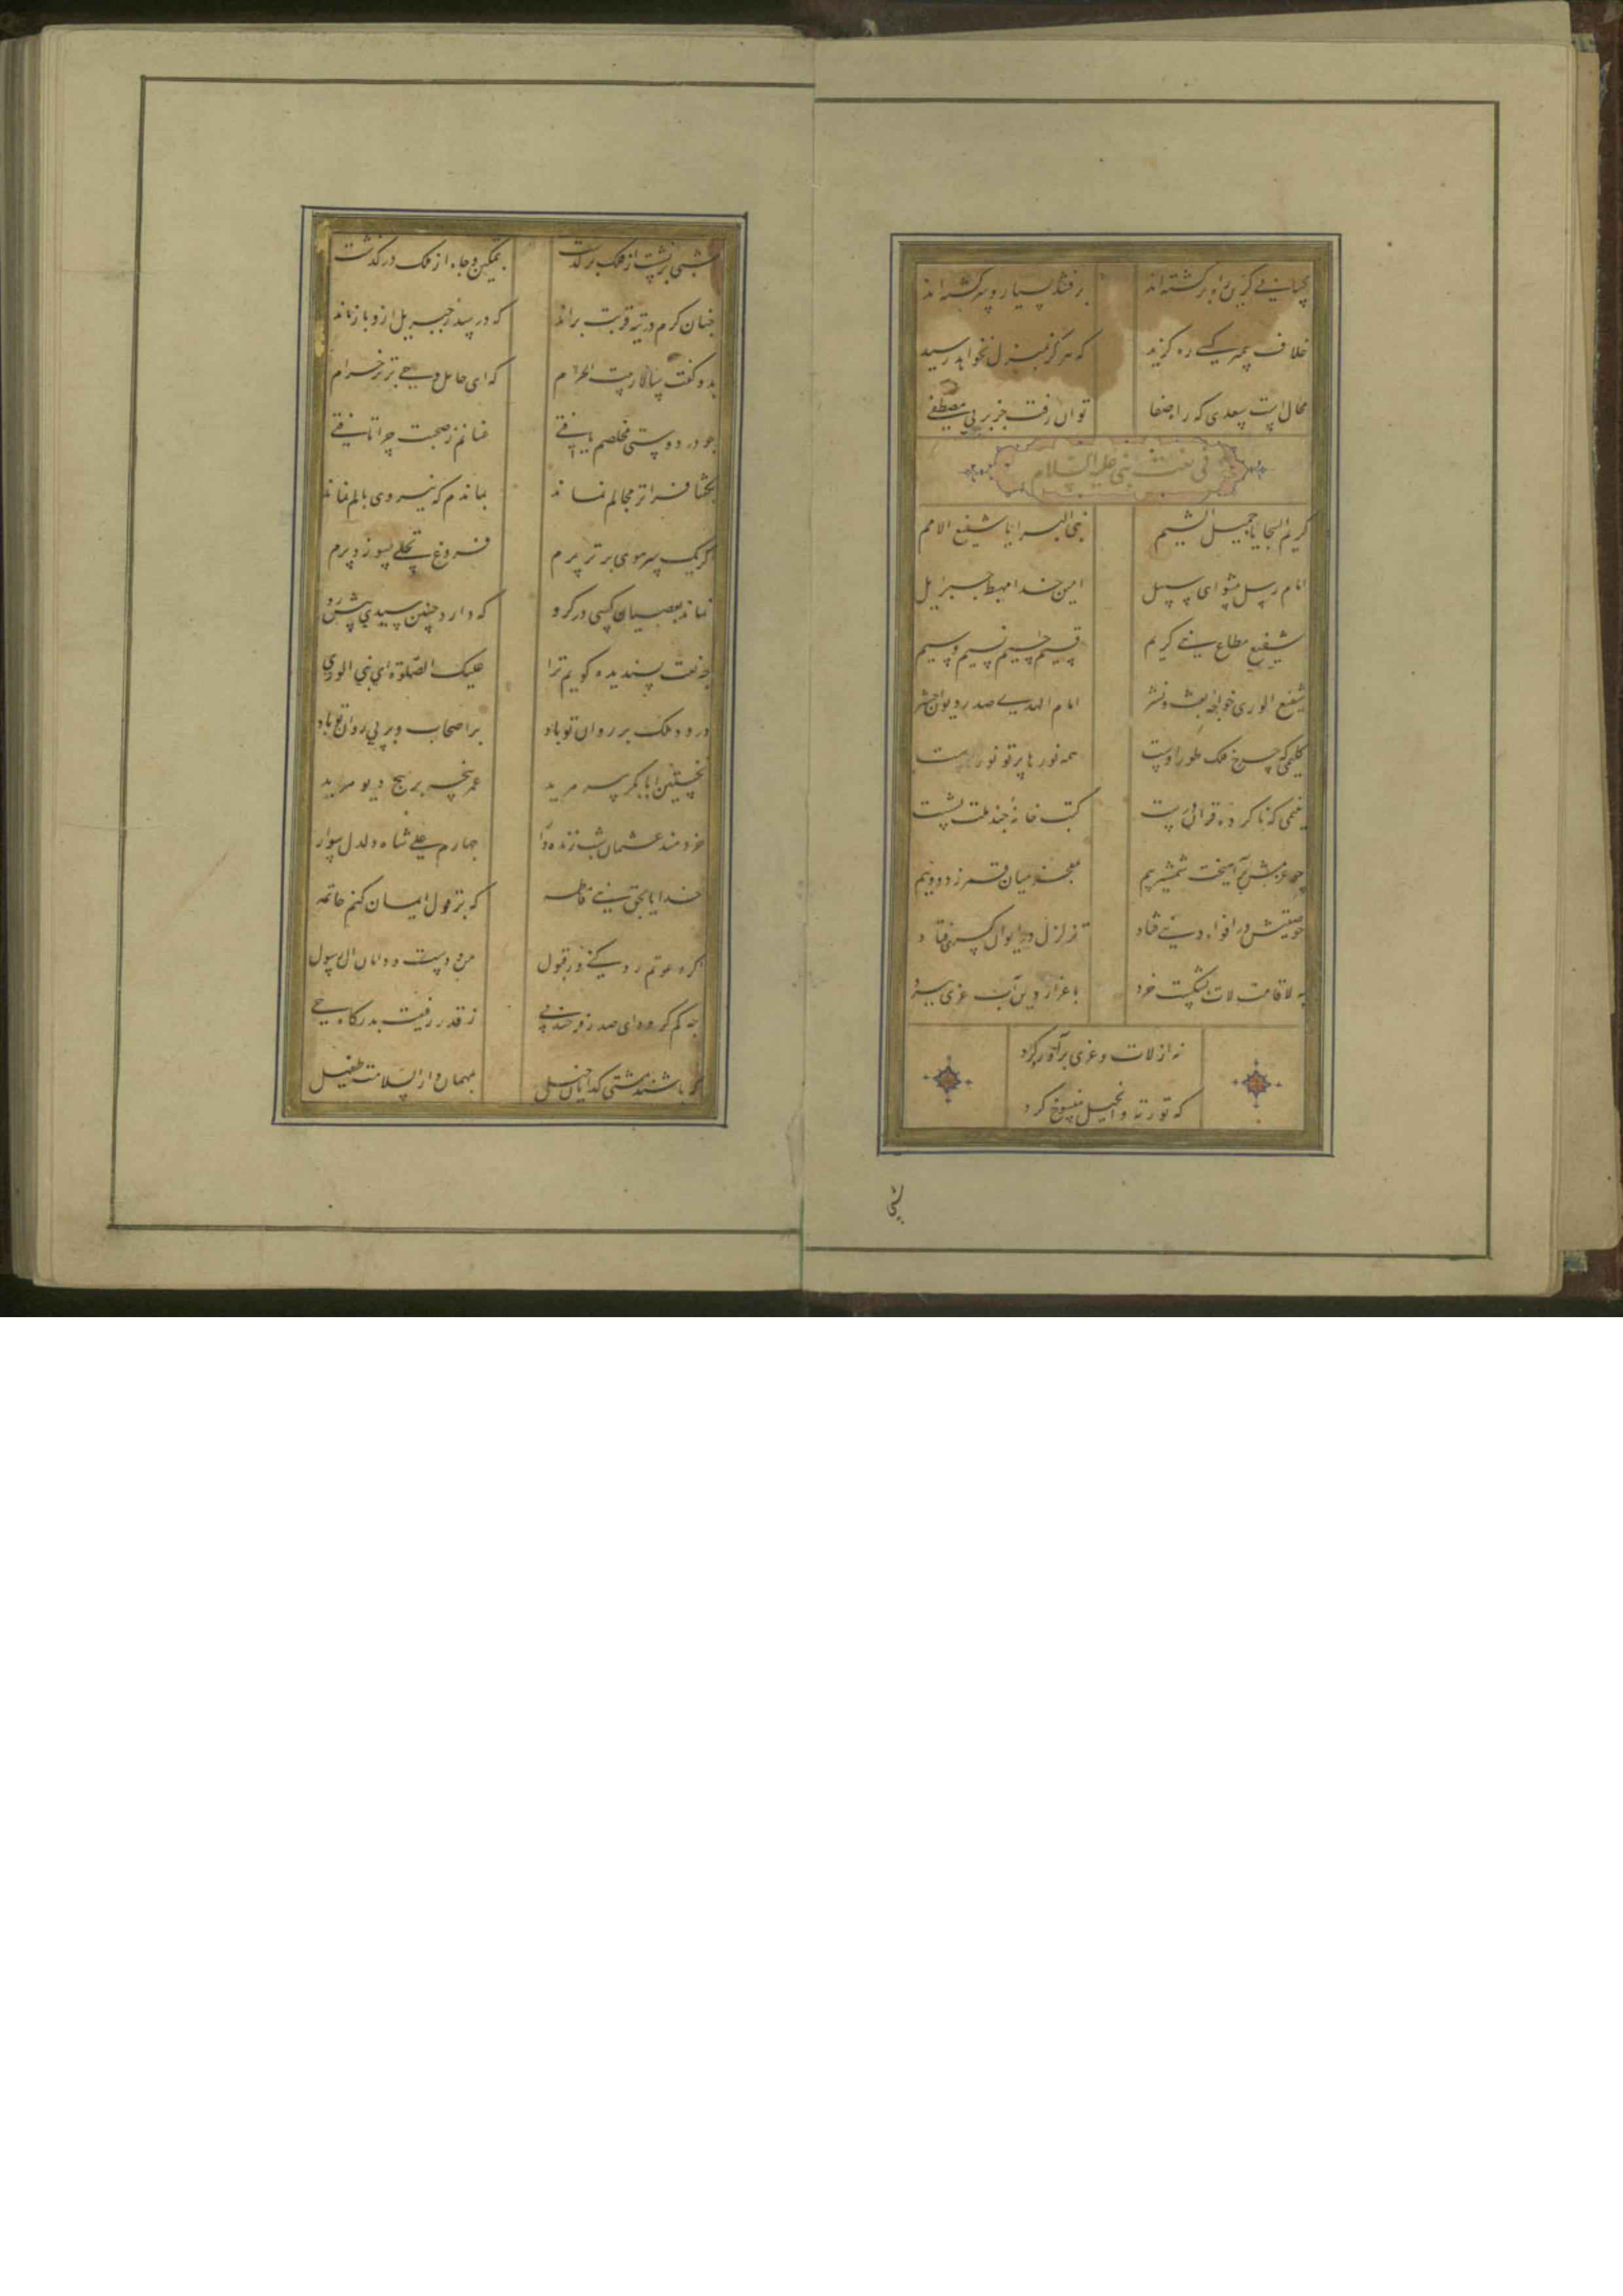 کسانی کزین راه برگشته‌اند برفتند بسیار و سرگشته‌اند
خلاف پیمبر کسی ره گزید که هرگز بمنزل نخواهد رسید
محال است سعدی که راه صفا توان رفت جز بر پی مصطفی
فی نعت نبی علیه السلام
کریم السجایا جمیل الشیم نبی البرایا شفیع الامم
امام رسل پیشوای سبیل امین خدا مهبط جبرئیل
شفیع مطاع نبی کریم قسیم جسیم نسیم وسیم
شفیع الوری خواجه بعث و نشر امام الهدی صدر دیوان حشر
کلیمی که چرخ فلک طور اوست همه نورها پرتو نور اوست
یتیمی که ناکرده قرآن درست کتب خانه چند ملت بشست
چو عزمش برآمیخت شمشیر بیم بمعجز میان قمر زد دو نیم
چو صیتش در افواه دنیی فتاد تزلزل در ایوان کسری فتاد
به لا قامت لات بشکست خرد باعزاز دین آب عزی ببرد
نه از لات و عزی برآورد گرد
که توریة و انجیل منسوخ کرد
شبی
شبی برنشست از فلک برگذشت بتمکین و جاه از ملک درگذشت
چنان گرم در تیه قربت براند که در سدره جبریل ازو بازماند
بدو گفت سالار بیت الحرام که ای حامل وحی برتر خرام
چو در دوستی مخلصم یافتی عنانم ز صحبت چرا تافتی
بگفتا فراتر مجالم نماند بماندم که نیروی بالم نماند
اگر یک سر موی برتر پرم فروغ تجلی بسوزد پرم
نماند بعصیان کسی در گرو که دارد چنین سیدی پیش رو
چه نعت پسندیده گویم ترا علیک الصلوة ای نبی الوری
درود ملک بر روان تو باد بر اصحاب و بر پی روان تو باد
نخستین ابابکر پیر مرید عمر پنجه بر پیچ دیو مرید
خردمند عثمان شب زنده دار چهارم علی شاه دلدل سوار
خدایا بحق بنی فاطمه که بر قول ایمان کنم خاتمه
اگر دعوتم رد کنی ور قبول من و دست و دامان آل رسول
چه کم گردد ای صدر فرخنده پی ز قدر رفیعت بدرگاه حی
که باشند مشتی گدایان خیل بمهمان دار السلامت طفیل